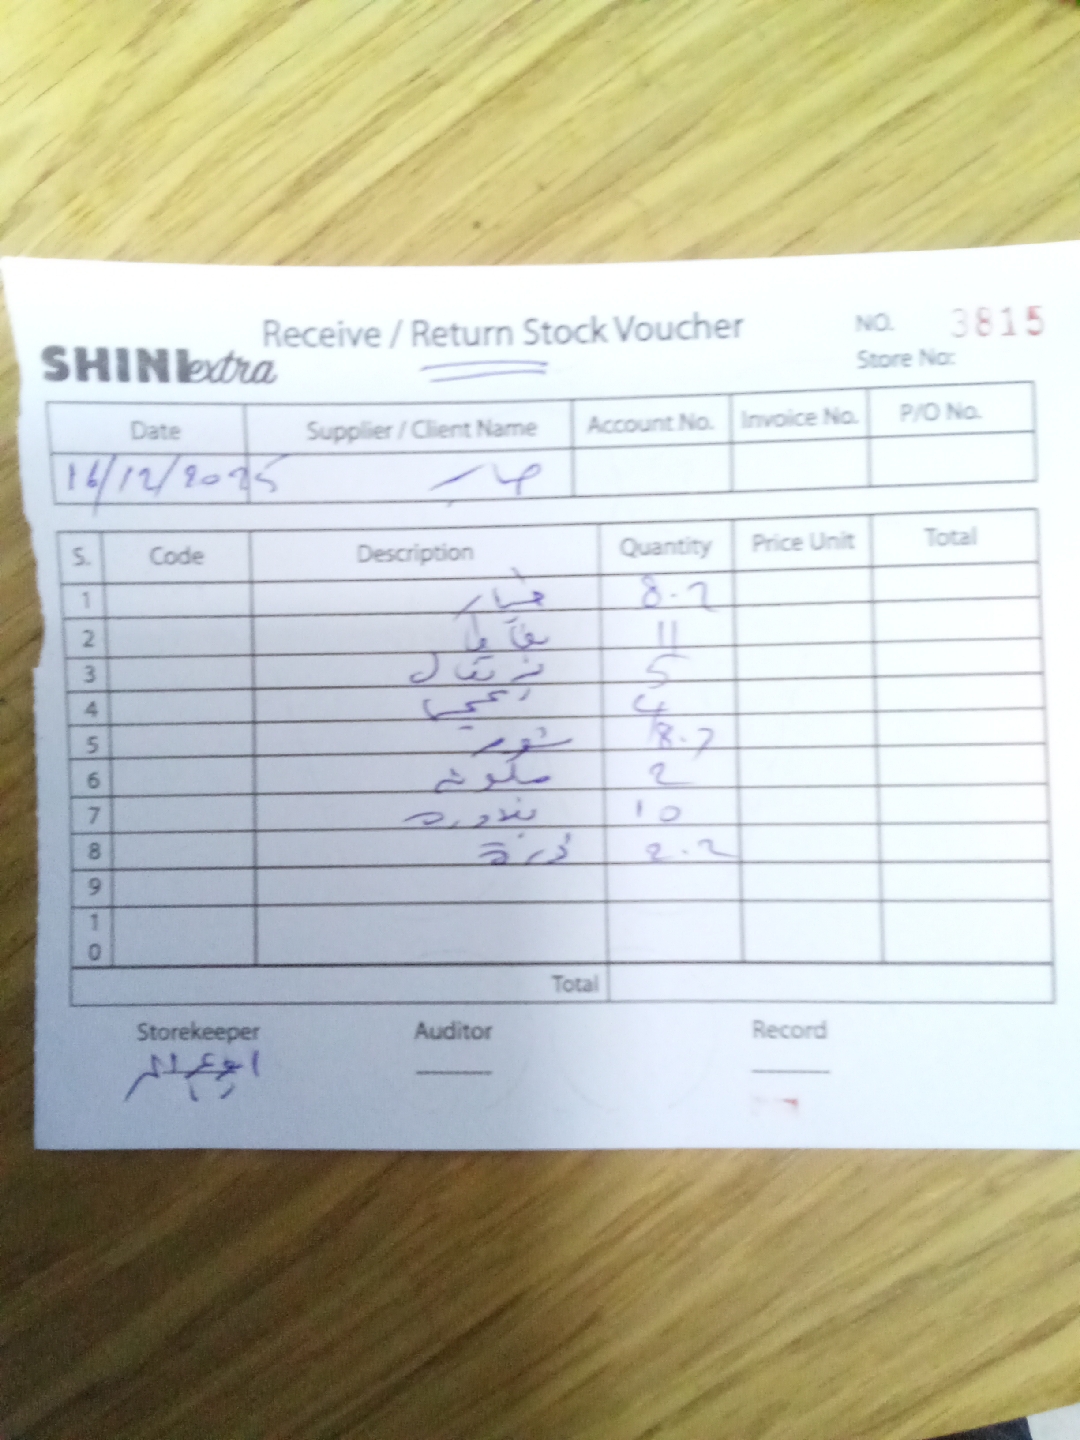 Receive / Return Stock Voucher
NO. 3815
SHINI extra
Store No:
Date Supplier / Client Name Account No. Invoice No. P/O No.
16/12/2025
S. Code Description Quantity Price Unit Total
1 خيار 8.2
2 11
3 برتقال 5
4 4
5 8.7
6 ملونه 2
7 بندوره 10
8 ذرة 2.2
9
10
Total
Storekeeper Auditor Record